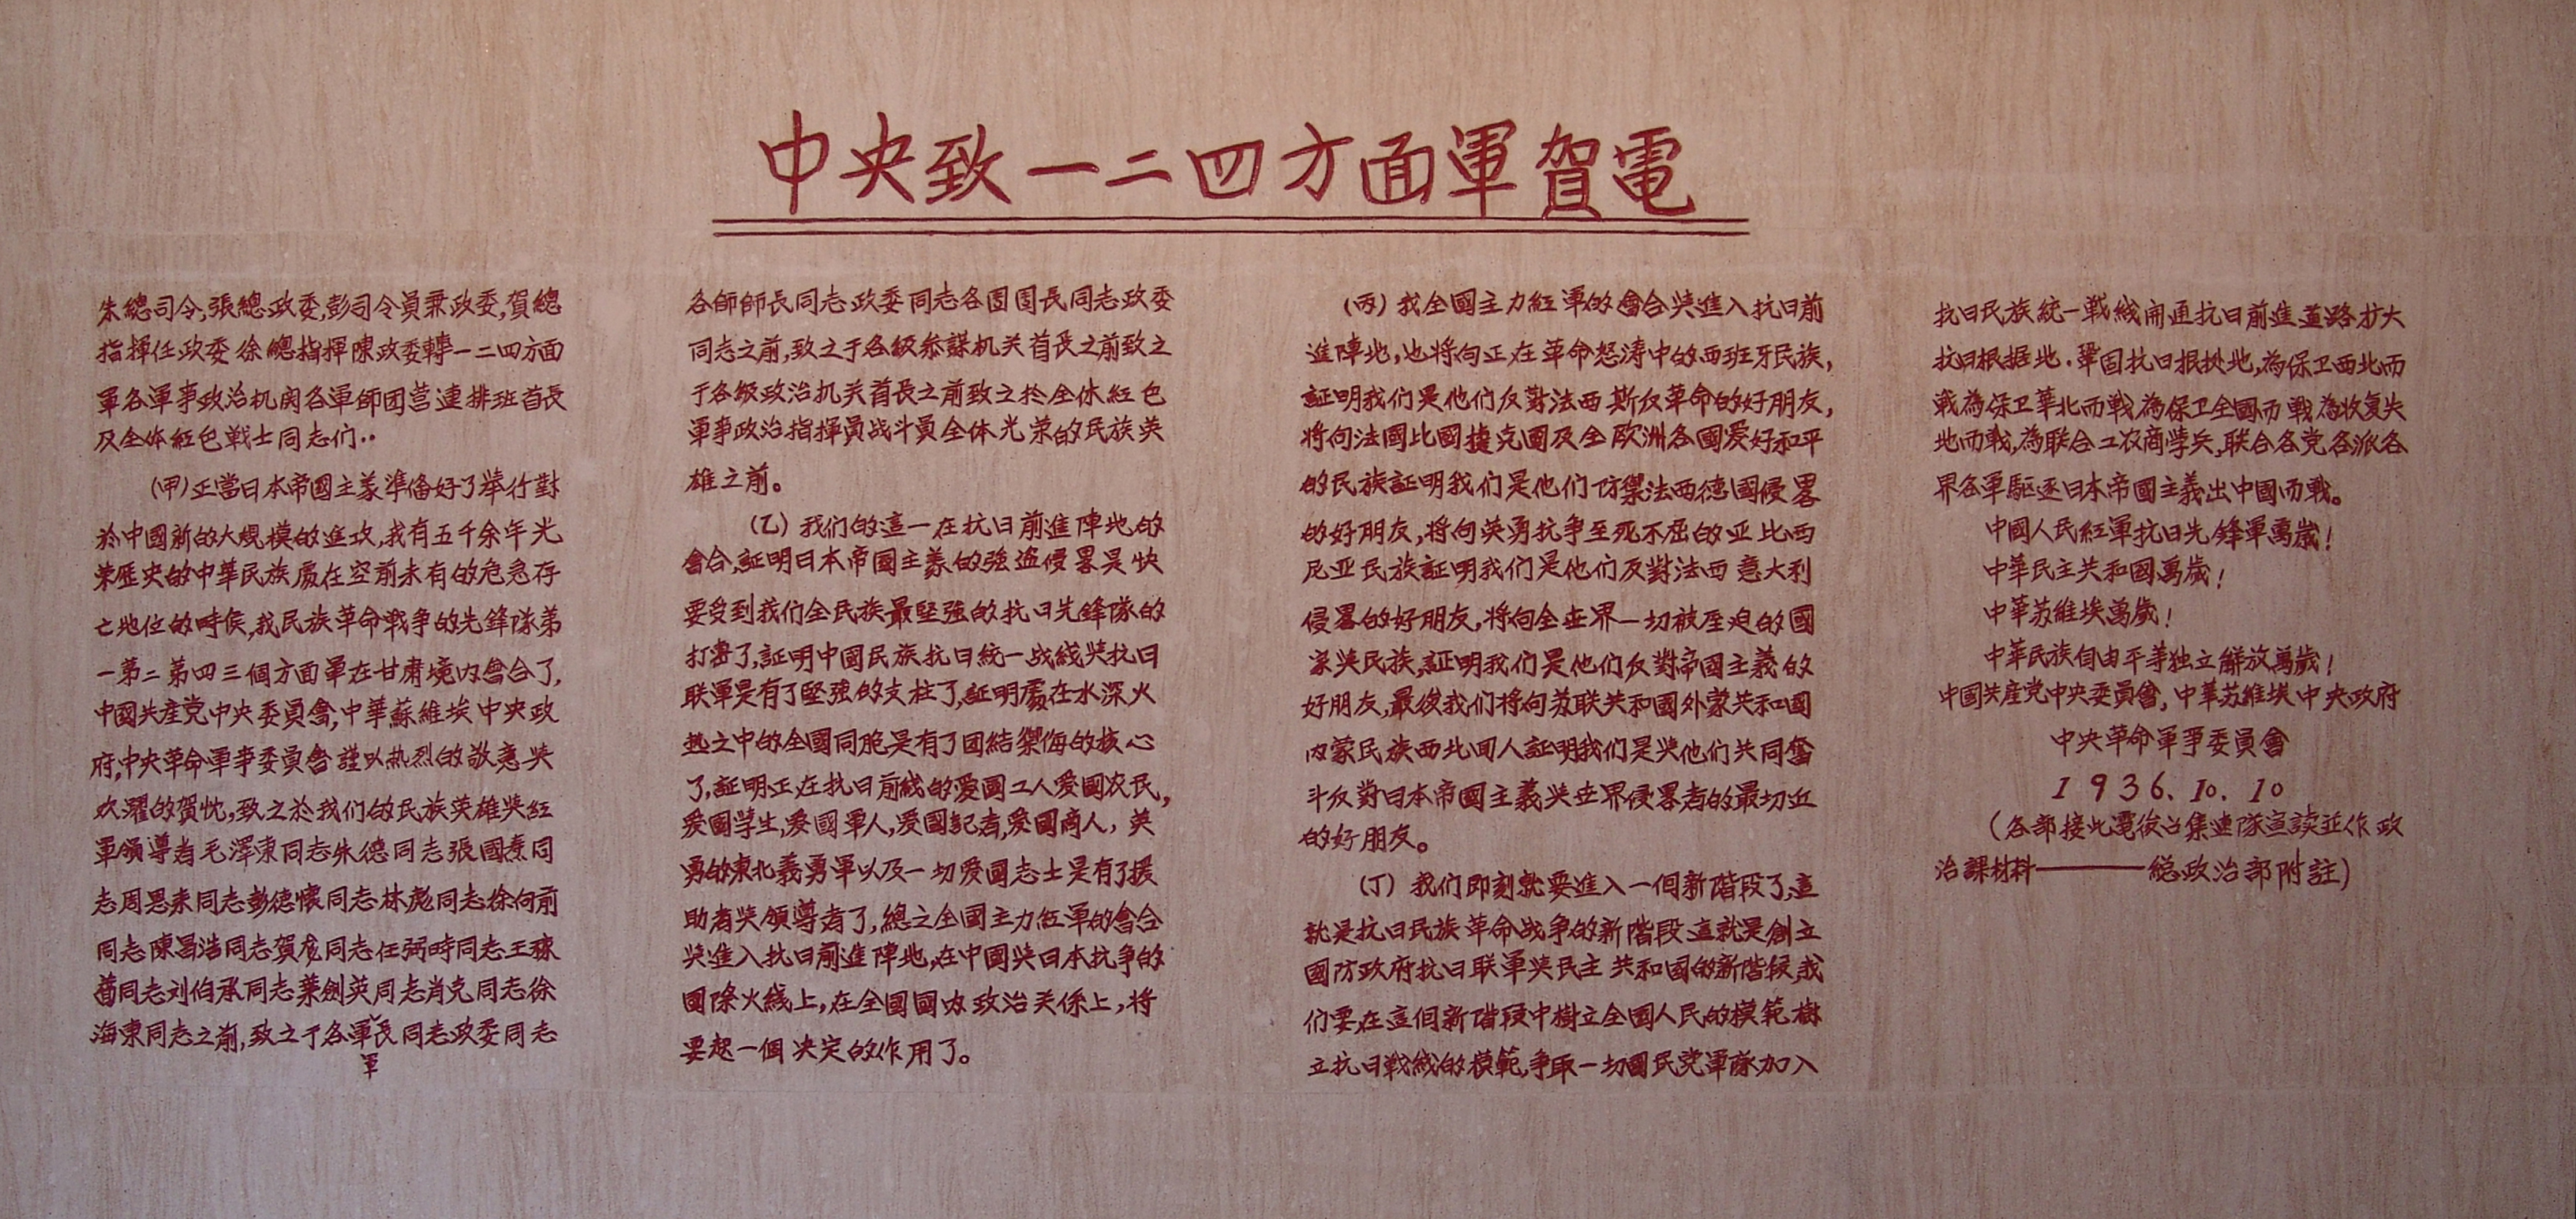 中央致一二四方面軍賀電
朱總司令,張總政委,彭司令員兼政委,賀總
指揮任政委徐總指揮陳政委轉一二四方面
軍各軍事政治机関各軍師団营連排班首長
及全体紅色戦士同志们:
(甲)正當日本帝國主義準備好了舉行對
於中國新的大規模的進攻,我有五千余年光
荣歷史的中華民族處在空前未有的危急存
亡地位的時侯,我民族革命戰争的先鋒隊第
一第二第四三個方面軍在甘肅境内會合了,
中國共産党中央委員會,中華蘇維埃中央政
府,中央革命軍事委員會謹以热烈的敬意與
欢躍的賀忱,致之於我们的民族英雄與紅
軍領導者毛澤東同志朱德同志張國燾同
志周恩来同志彭德懷同志林彪同志徐向前
同志陳昌浩同志賀龙同志任弼時同志王稼
薔同志刘伯承同志葉劍英同志肖克同志徐
海東同志之前,致之于各軍軍長同志政委同志
各師師長同志政委同志各团团長同志政委
同志之前,致之于各級参謀机关首長之前致之
于各級政治机关首長之前致之於全体紅色
軍事政治指揮員战斗員全体光荣的民族英
雄之前。
(乙)我们的這一在抗日前進陣地的
會合,証明日本帝國主義的強盗侵畧是快
要受到我们全民族最堅強的抗日先鋒隊的
打击了,証明中國民族抗日統一战綫與抗日
联軍是有了堅強的支柱了,証明處在水深火
热之中的全國同胞是有了团結禦侮的核心
了,証明正在抗日前綫的爱國工人爱國农民,
爱國学生,爱國軍人,爱國記者,爱國商人,英
勇的東北義勇軍以及一切爱國志士是有了援
助者與領導者了,總之全國主力紅軍的會合
與進入抗日前進陣地,在中國與日本抗争的
國際火綫上,在全國國内政治关係上,将
要起一個决定的作用了。
(丙)我全國主力紅軍的會合與進入抗日前
進陣地,也将向正在革命怒涛中的西班牙民族,
証明我们是他们反對法西斯反革命的好朋友,
将向法國比國捷克國及全欧洲各國爱好和平
的民族証明我们是他们防禦法西德國侵畧
的好朋友,将向英勇抗争至死不屈的亚比西
尼亚民族証明我们是他们反對法西意大利
侵畧的好朋友,将向全世界一切被压迫的國
家與民族,証明我们是他们反對帝國主義的
好朋友,最後我们将向苏联共和國外蒙共和國
内蒙民族西北回人証明我们是與他们共同奮
斗反對日本帝國主義與世界侵畧者的最切近
的好朋友。
(丁)我们即刻就要進入一個新階段了,這
就是抗日民族革命战争的新階段這就是創立
國防政府抗日联軍與民主共和國的新階候,我
们要在這個新階段中樹立全國人民的模範樹
立抗日戰綫的模範,争取一切國民党軍隊加入
抗日民族統一戰綫開通抗日前進道路扩大
抗日根据地.鞏固抗日根据地,為保卫西北而
戰為保卫華北而戰為保卫全國而戰為收复失
地而戰,為联合工农商学兵,联合各党各派各
界各軍駆逐日本帝國主義出中國而戰。
中國人民紅軍抗日先鋒軍萬歲!
中華民主共和國萬歲!
中華苏維埃萬歲!
中華民族自由平等独立解放萬歲!
中國共産党中央委員會,中華苏維埃中央政府
中央革命軍事委員會
1936.10.10
(各部接此電後召集連隊宣讀並作政
治課材料——總政治部附註)